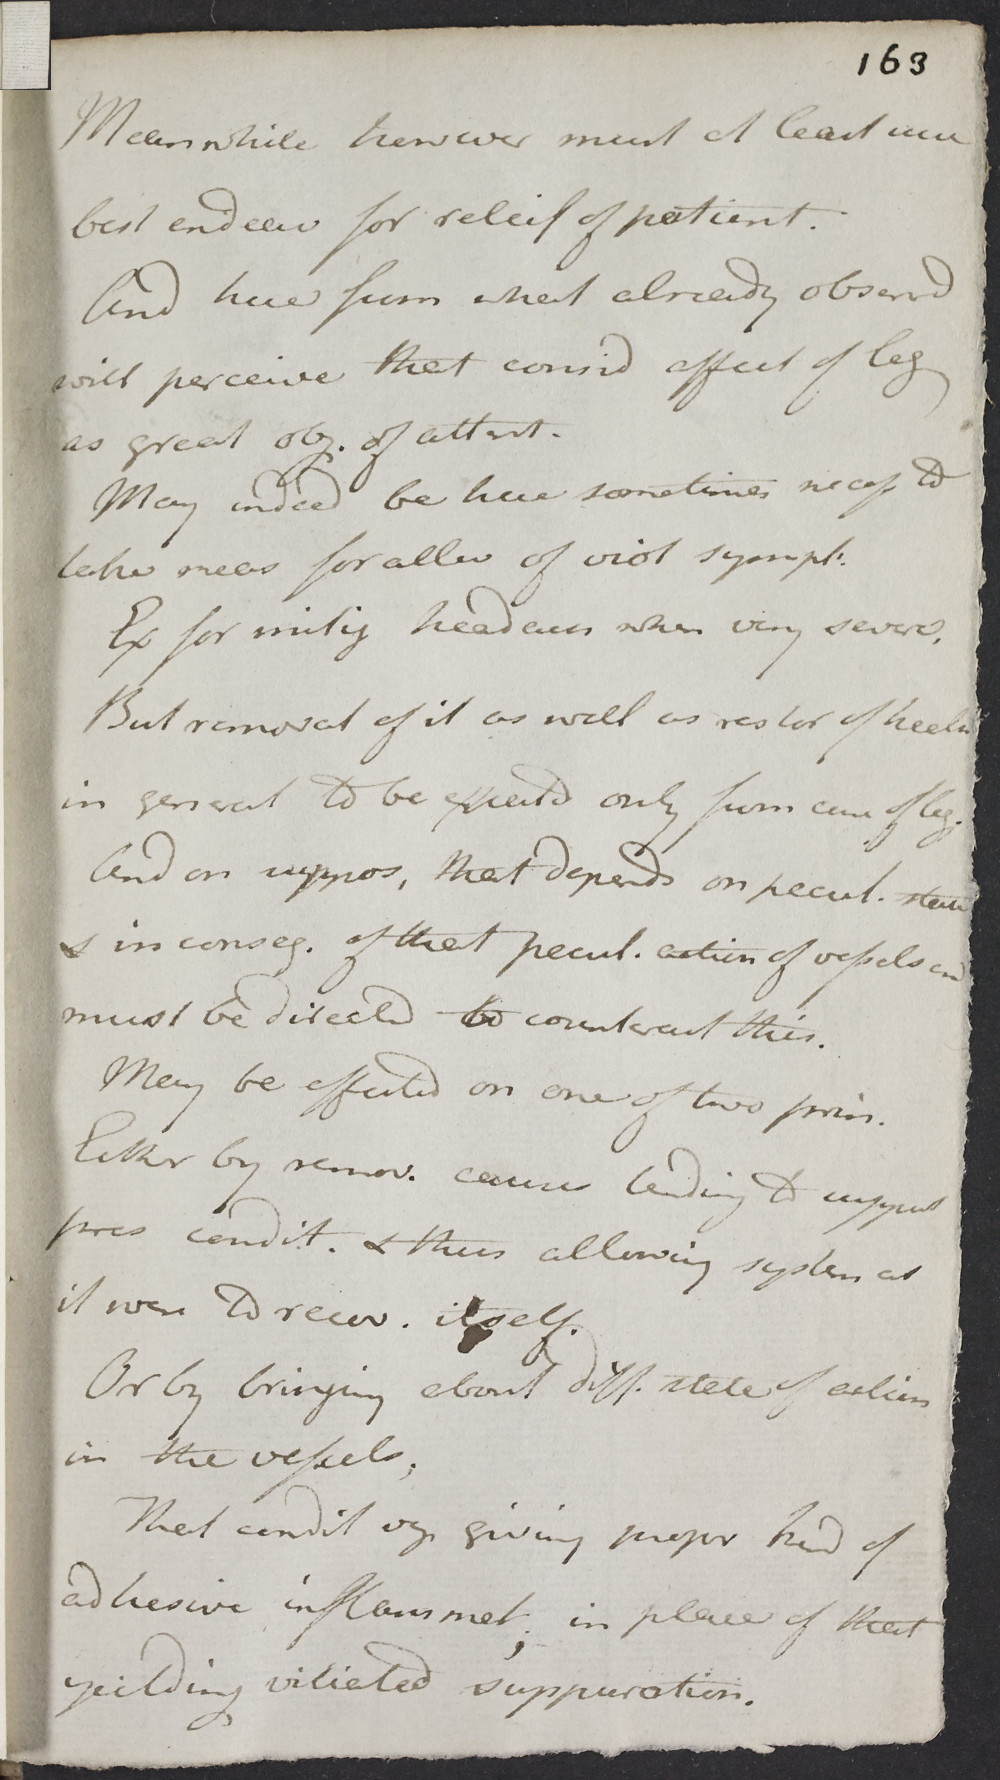 163
Meanwhile however must at least use
best endeav for releif of patient.
And here from what already observd
will perceive that consid affect of leg
as great obj. of attent.
May indeed be here sometimes necess to
take meas for allev of viol sympt.
Ex for mitig headach when very severe.
But removal of it as well as restor of health
in general to be expectd only from cure of leg.
And on suppos, that depends on pecul. state
& in conseq. of that pecul. action of vessels end
must be directed to counteract this.
May be effected on one of two prin.
Either by remov. causes tending to support
pres condit. & thus allowing system as
it were to recov. itself.
Or by bringing about diff. state of action
in the vessels,
That condit vz. giving proper kind of
adhesive inflammat, in place of that
yeilding vitiated suppuration.